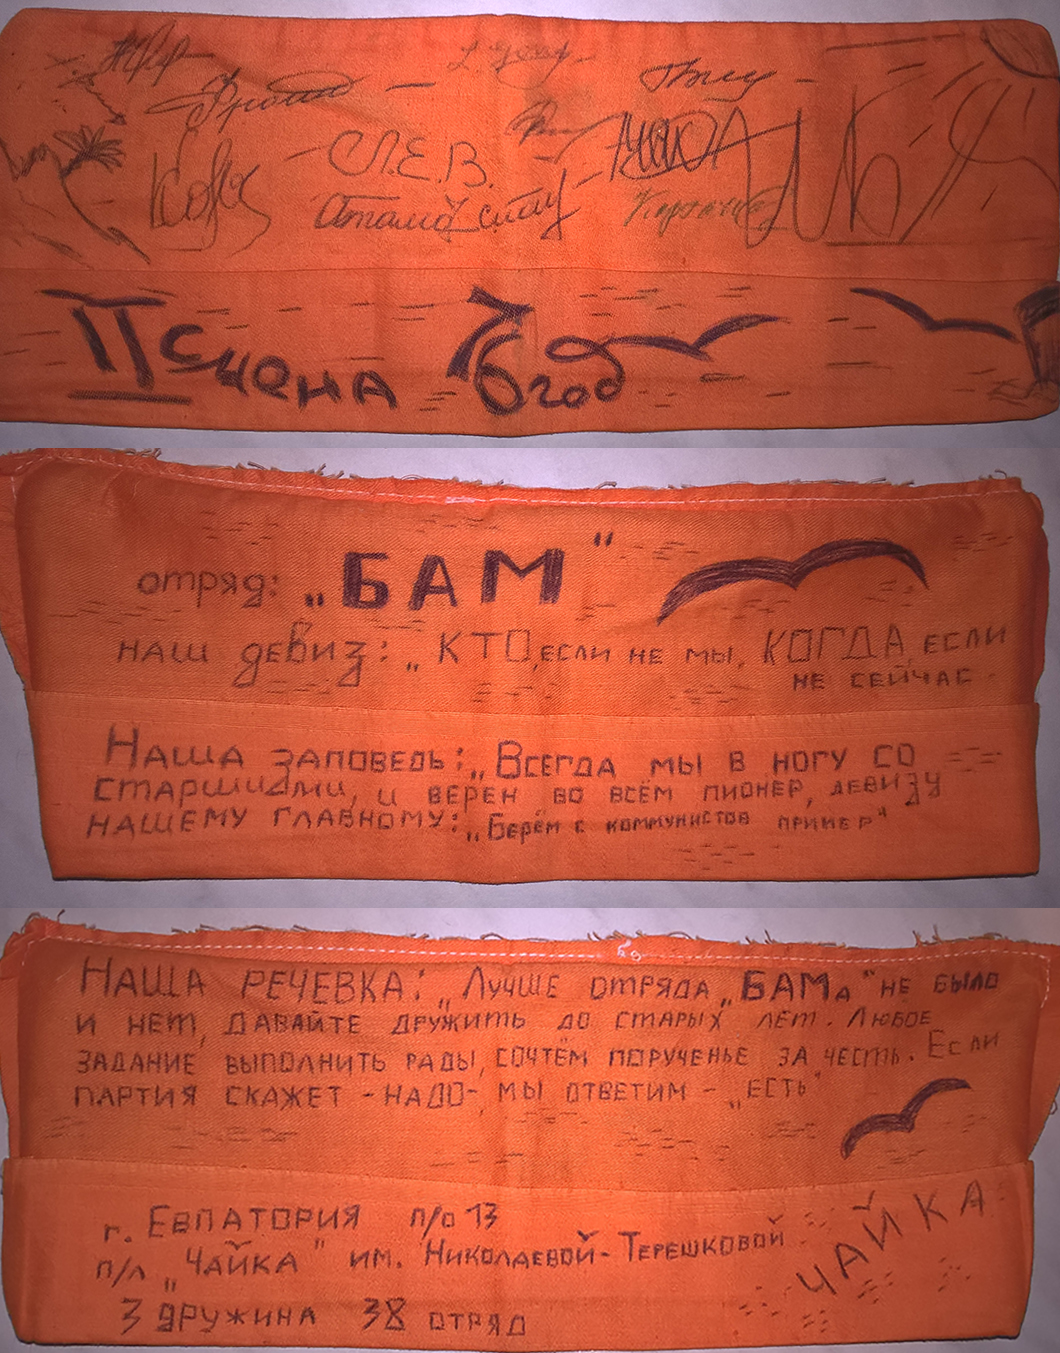 С.Л.Е.В.
II смена 76 год
отряд: „БАМ"
наш девиз: „КТО, если не мы, КОГДА, если
не сейчас
Наша заповедь: „Всегда мы в ногу со
старшими, и верен во всём пионер, девизу
нашему главному: „Берём с коммунистов пример"
Наша речевка: „Лучше отряда „БАМа" не было
и нет, давайте дружить до старых лет. Любое
задание выполнить рады, сочтём порученье за честь. Если
партия скажет -надо-, мы ответим - „есть"
г. Евпатория п/о 13
п/л „Чайка" им. Николаевой-Терешковой
ЧАЙКА
3 дружина 38 отряд